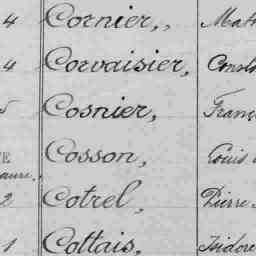 4 Cornier,, Math
4 Corvaisier,
5 Cosnier, Franç
Cosson, Louis
2 Cotrel, Pierre
1 Cottais. Isidore